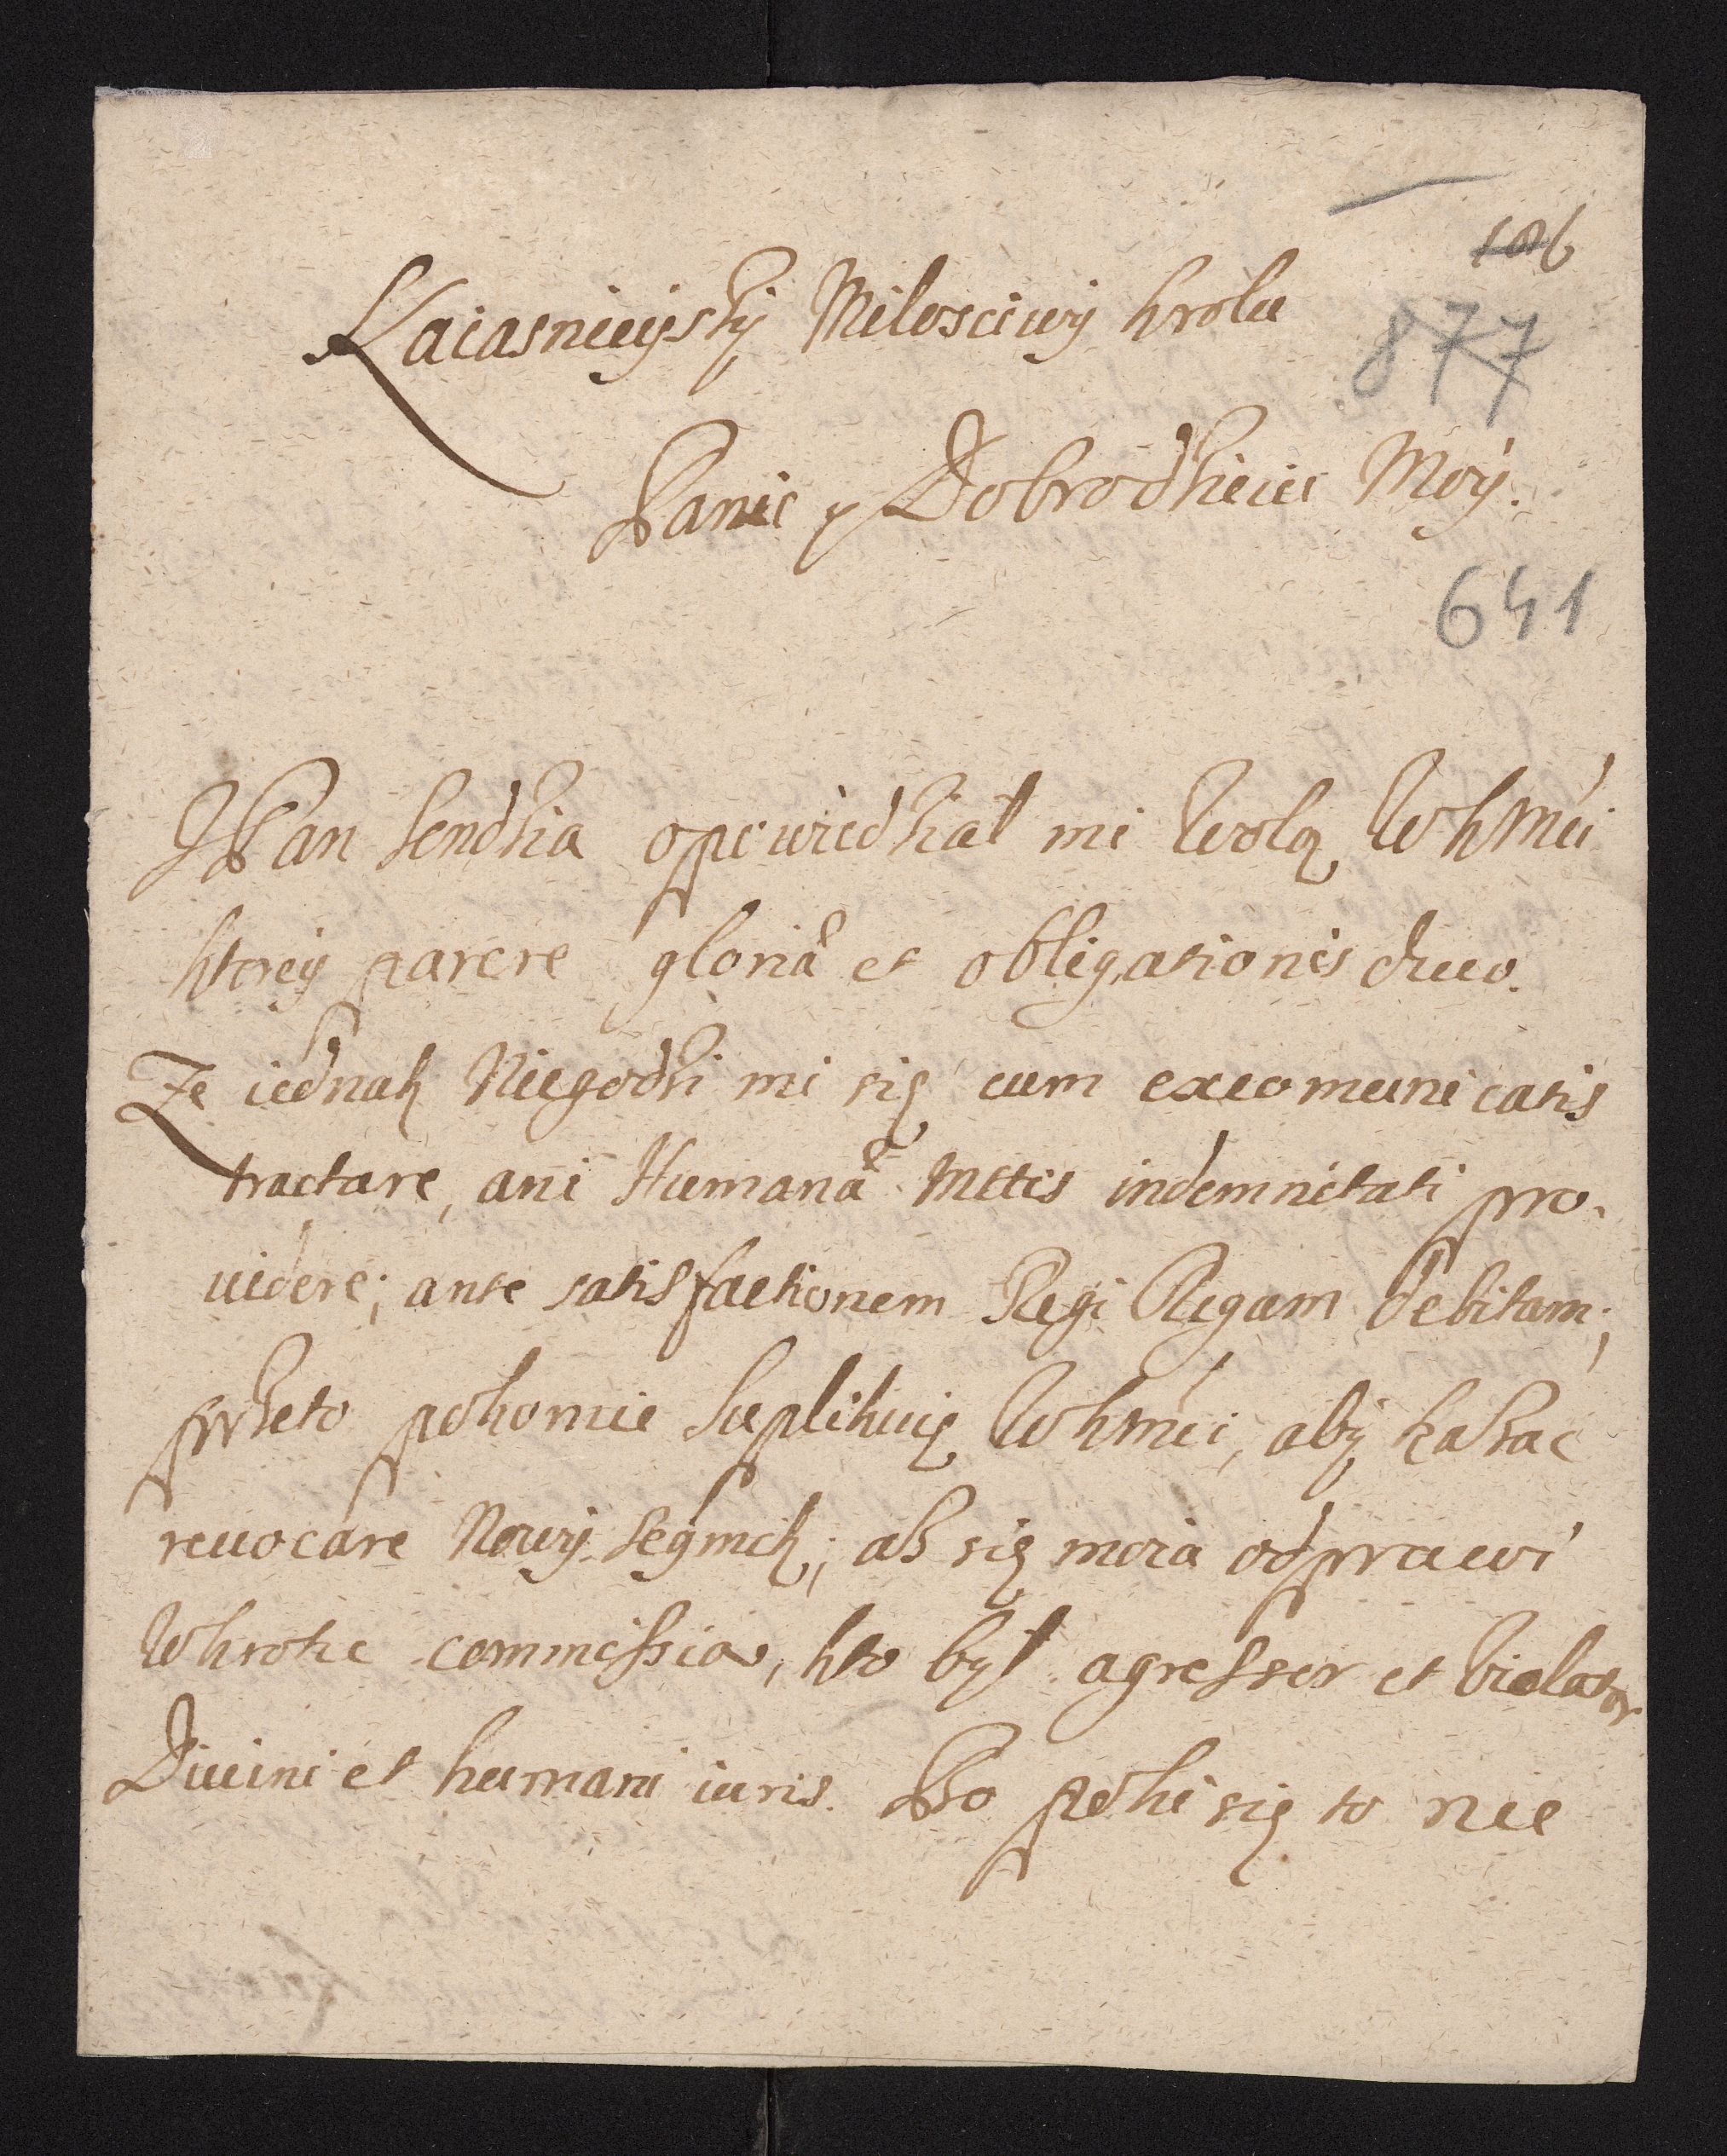 106
Naiasnieyszy Milosciwy krolu
877
Panie y Dobrodzieiu Moy.
641
JPan Sendzia opowiedział mi Wolą WKMći
ktorey parere gloriã et obligationis duco.
Ze iednak Niegodzi mi się cum excomunicatis
tractare, ani Humanã Mttis indemnitati pro-
uidere; ante satisfactionem Regi Regum debitam;
przeto pokornie Suplikuię WKMći, aby kazać
reuocare Nowy Seymik; asz się moia odprawi
Wkrotce commissia, kto był agressor et Violator
Diuini et humani iuris. Bo poki się to nie